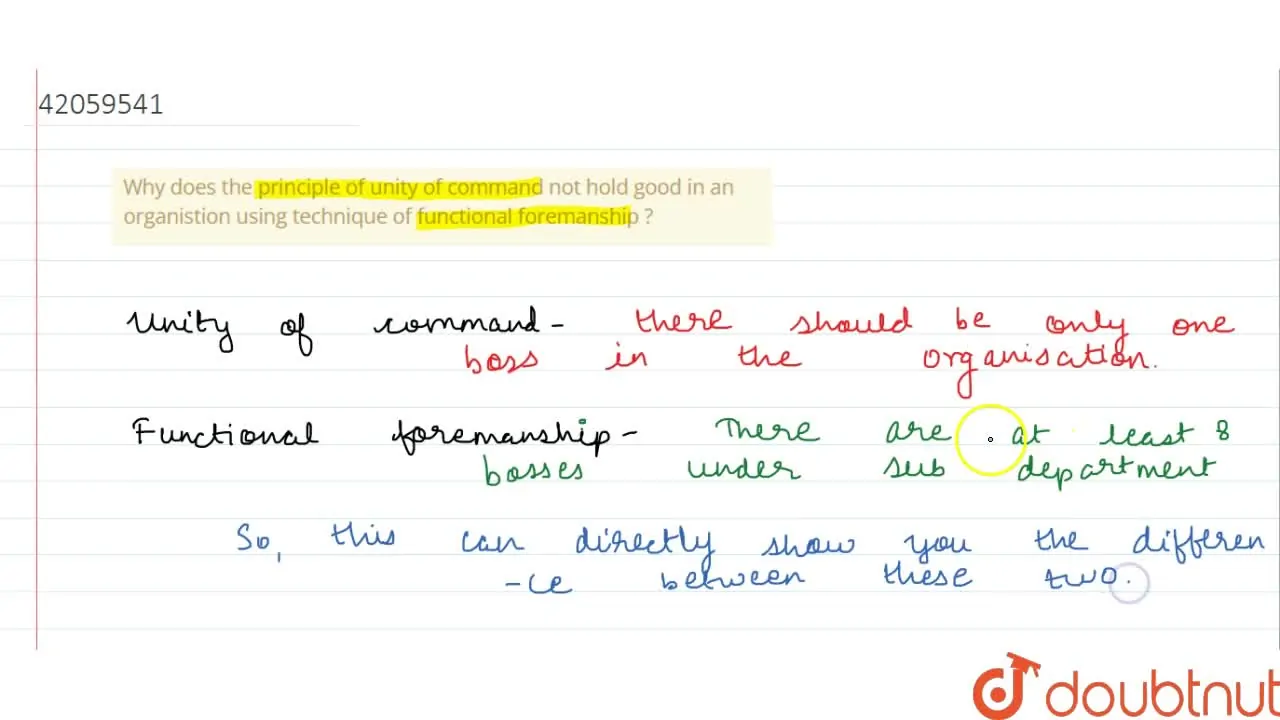 42059541
Why does the principle of unity of command not hold good in an
organistion using technique of functional foremanship ?
Unity of command - there should be only one
boss in the organisation.
Functional foremanship - There are at least 8
bosses under sub department
So, this can directly show you the differen
-ce between these two.
doubtnut